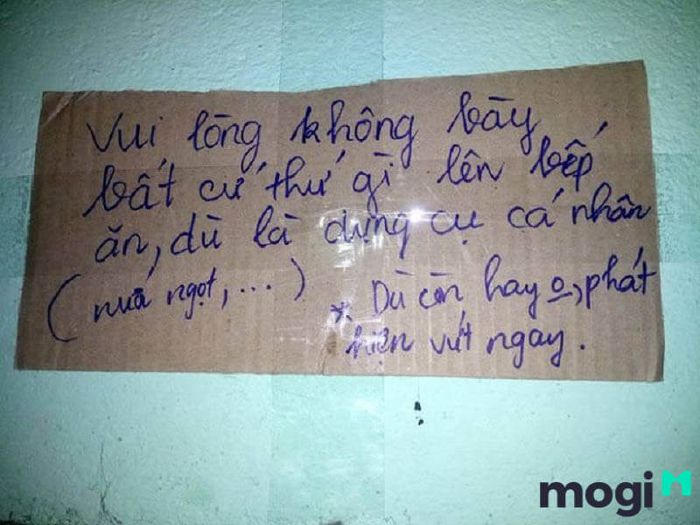 Vui lòng không bày
bất cứ thứ gì lên bếp
ăn, dù là dụng cụ cá nhân
(nước ngọt, ...)
* Dù còn hay o, phát
hiện vứt ngay.
mogi